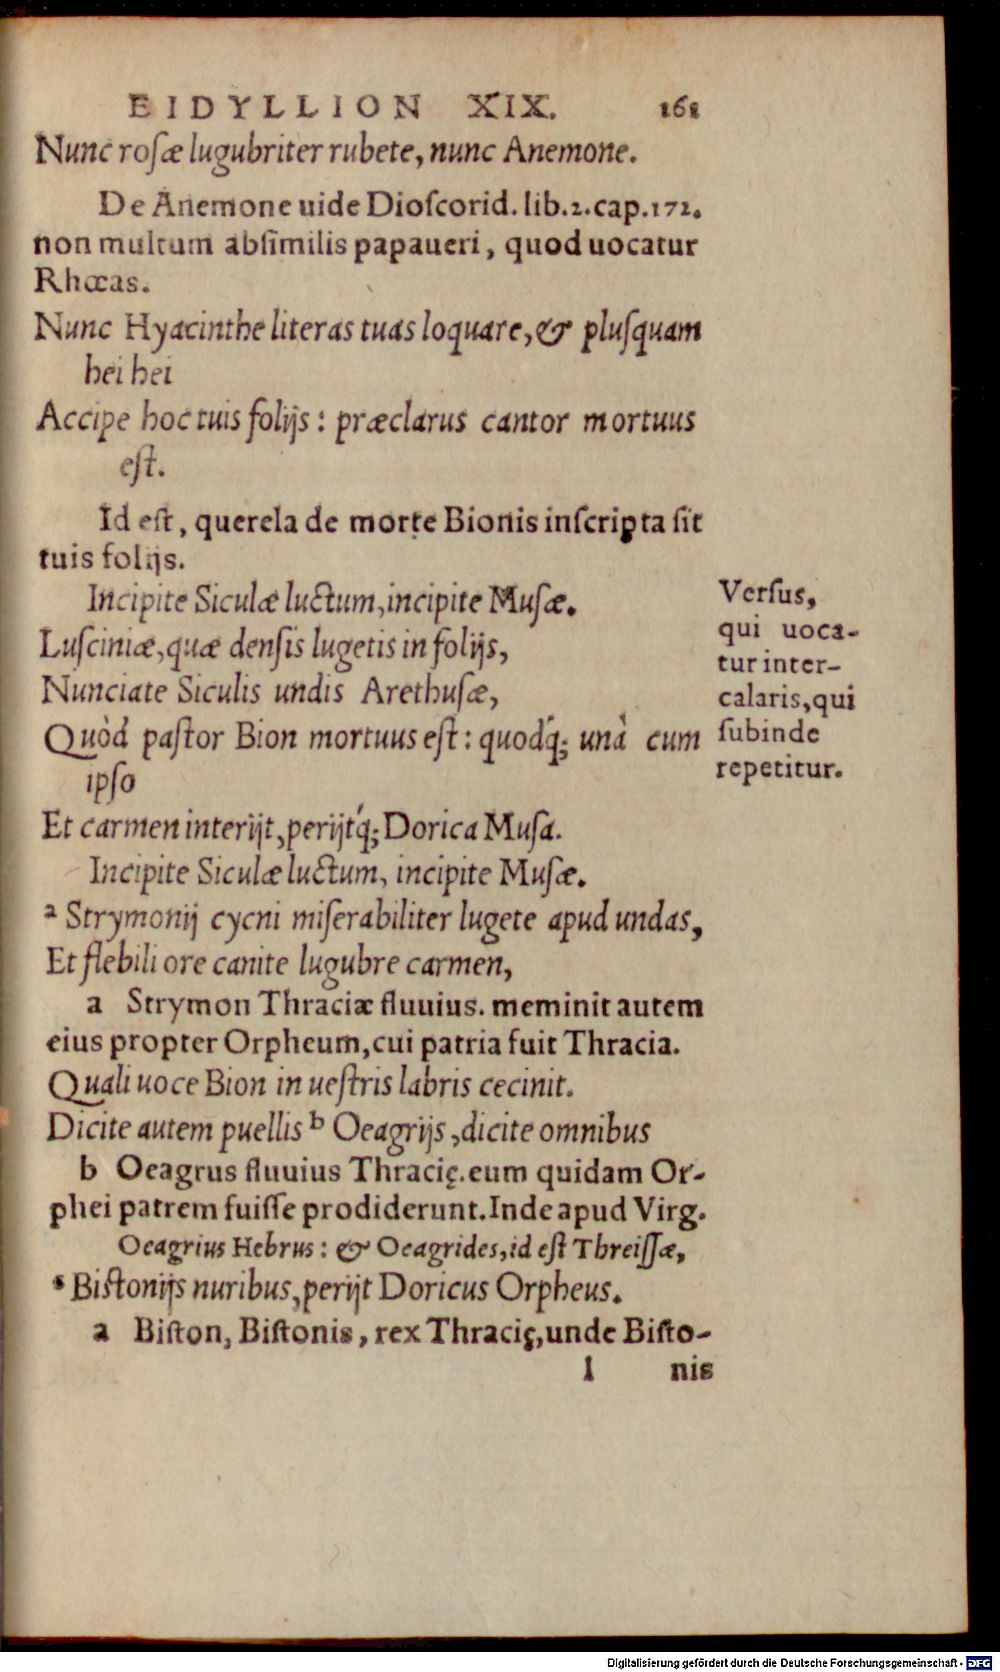 EIDYLLION XIX. 161
Nunc rosæ lugubriter rubete, nunc Anemone.
De Anemone uide Dioscorid. lib.2.cap.172.
non multum absimilis papaueri, quod uocatur
Rhœas.
Nunc Hyacinthe literas tuas loquare, & plusquam
hei hei
Accipe hoc tuis folijs: præclarus cantor mortuus
est.
Id est, querela de morte Bionis inscripta sit
tuis folijs.
Incipite Siculæ luctum, incipite Musæ.
Lusciniæ, quæ densis lugetis in folijs,
Nunciate Siculis undis Arethusæ,
Quòd pastor Bion mortuus est: quodq́; unà cum
ipso
Et carmen interijt, perijtq́; Dorica Musa.
Incipite Siculæ luctum, incipite Musæ.
a Strymonij cycni miserabiliter lugete apud undas,
Et flebili ore canite lugubre carmen,
a Strymon Thraciæ fluuius. meminit autem
eius propter Orpheum, cui patria fuit Thracia.
Quali uoce Bion in uestris labris cecinit.
Dicite autem puellis b Oeagrijs, dicite omnibus
b Oeagrus fluuius Thracię. eum quidam Or-
phei patrem fuisse prodiderunt. Inde apud Virg.
Oeagrius Hebrus: & Oeagrides, id est Threissæ,
Bistonijs nuribus, perijt Doricus Orpheus.
a Biston, Bistonis, rex Thracię, unde Bisto-
l nis
Versus,
qui uoca-
tur inter-
calaris, qui
subinde
repetitur.
Digitalisierung gefördert durch die Deutsche Forschungsgemeinschaft - DFG